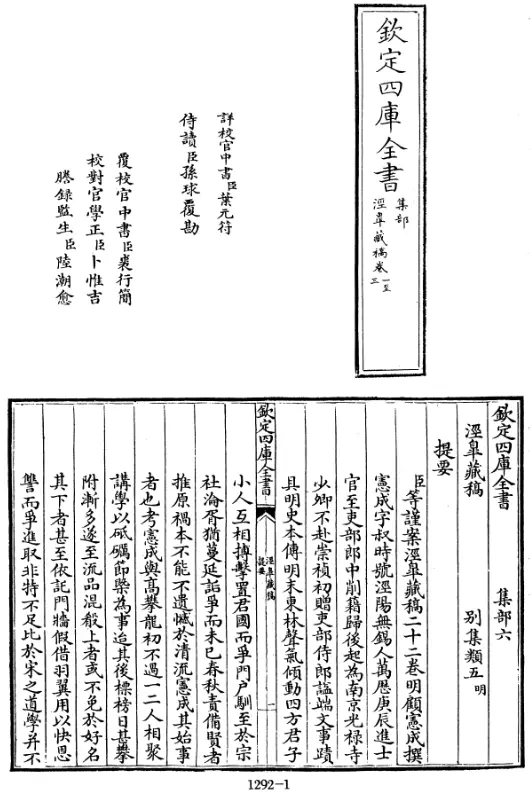 欽定四庫全書
集部
涇臯藏稿卷一至三
詳校官中書臣葉元符
侍讀臣孫球覆勘
覆校官中書臣裴行簡
校對官學正臣卜惟吉
謄錄監生臣陸潮愈
欽定四庫全書　集部六
涇臯藏稿　別集類五明
提要
臣等謹案涇臯藏稿二十二卷明顧憲成撰
憲成字叔時號涇陽無錫人萬厯庚辰進士
官至吏部郎中削籍歸後起為南京光禄寺
少卿不赴崇禎初贈吏部侍郎諡端文事蹟
具明史本傳明末東林聲氣傾動四方君子
欽定四庫全書
涇臯藏稿
提要
一
小人互相搏擊置君國而爭門户馴至於宗
社淪胥猶蔓延詬爭而未已春秋責備賢者
推原禍本不能不遺憾於清流憲成其始事
者也考憲成與高攀龍初不過一二人相聚
講學以砥礪節槩為事迨其後標榜日甚攀
附漸多遂至流品混殽上者或不免於好名
其下者甚至依託門牆假借羽翼用以快恩
讐而爭進取非特不足比於宋之道學并不
1292-1